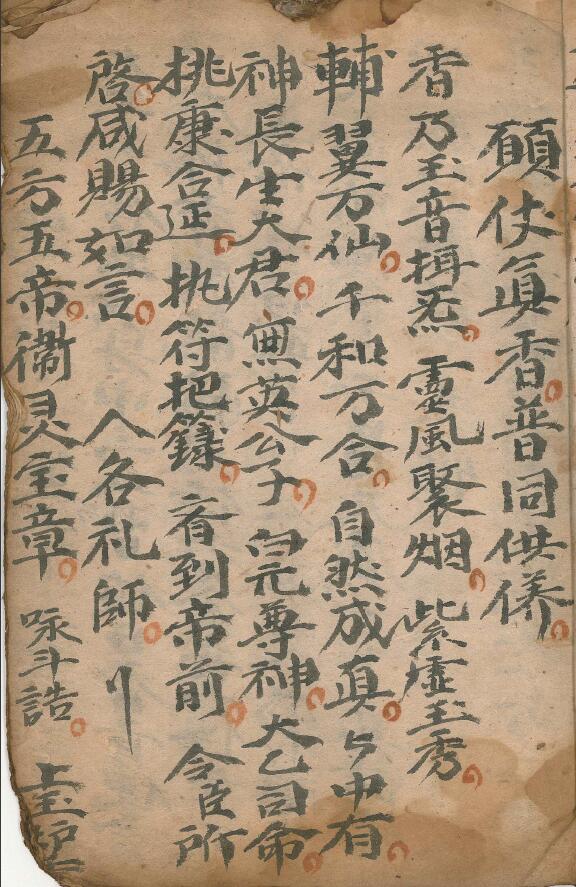 願仗真香普同供養
香乃玉音揖炁靈風聚烟紫虛玉秀
輔翼万仙千和万合自然成真与中有
神長生大君無英公子白元尊神太乙司命
桃康合延执符把籙香到帝前令臣所
啓咸賜如言人各礼師
五方五帝衛灵宝章咏斗誥